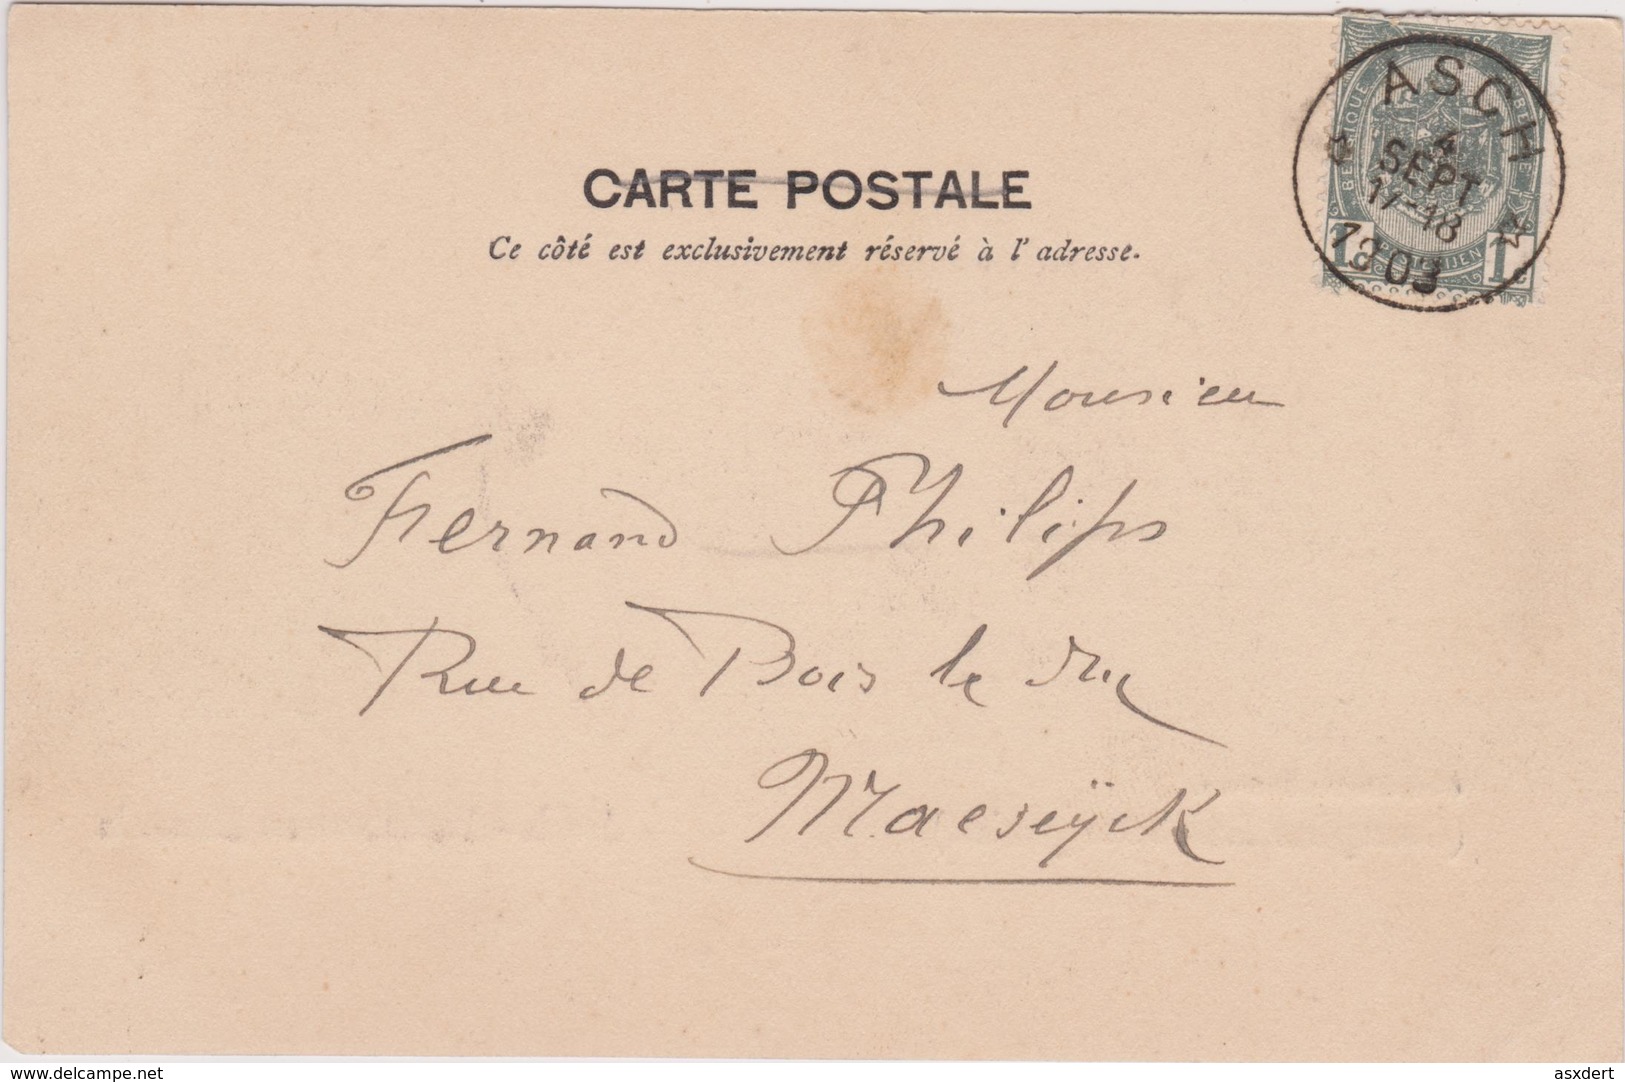 CARTE POSTALE
Ce côté est exclusivement réservé à l'adresse.
ASCH
4
SEPT
17-18
1903
BELGIQUE
1c 1c
Monsieur
Fernand Philips
Rue de Bois le duc
Maeseÿck
delcampe.net
asxdert